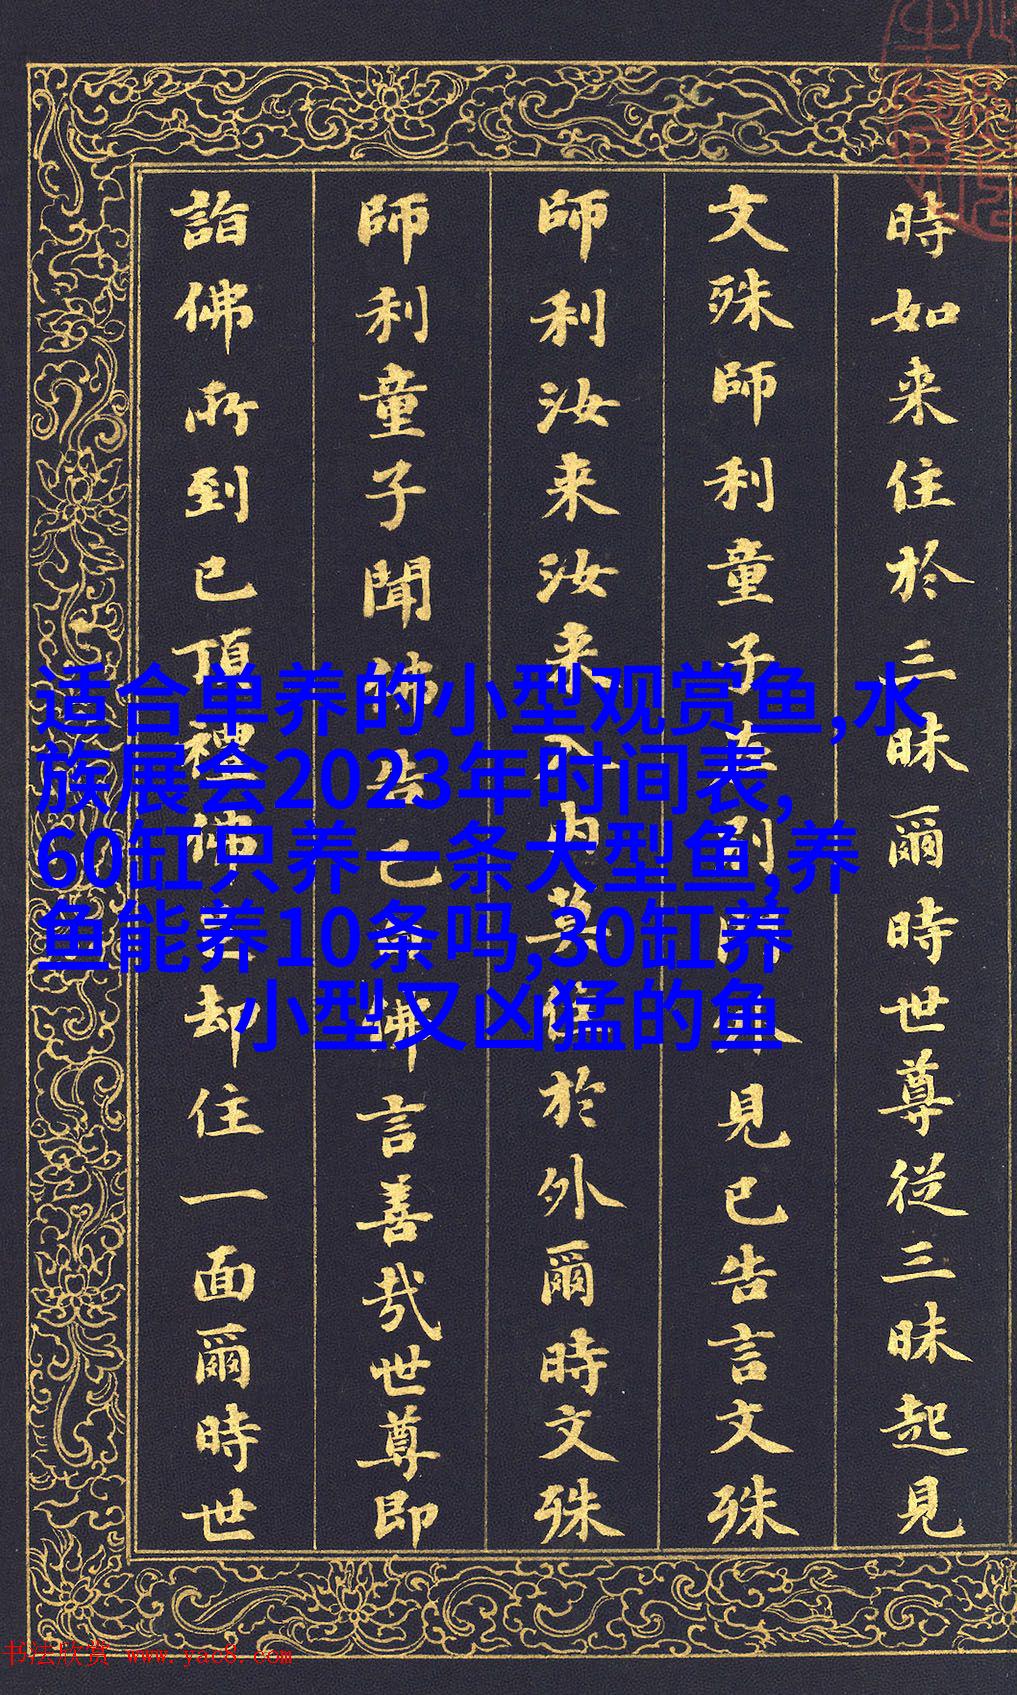 時如来住於三昧爾時世尊從三昧起見
文殊師利童子在門外見已告言文殊
師利汝来汝来入内莫住於外爾時文殊
師利童子聞佛告已佛言善哉世尊即
詣佛所到已頂禮佛却住一面爾時世
适合单养的小型观赏鱼,水
族展会2023年时间表,
60缸只养一条大型鱼,养
鱼能养10条吗,30缸养
小型又凶猛的鱼
书法欣赏 www.yac8.com